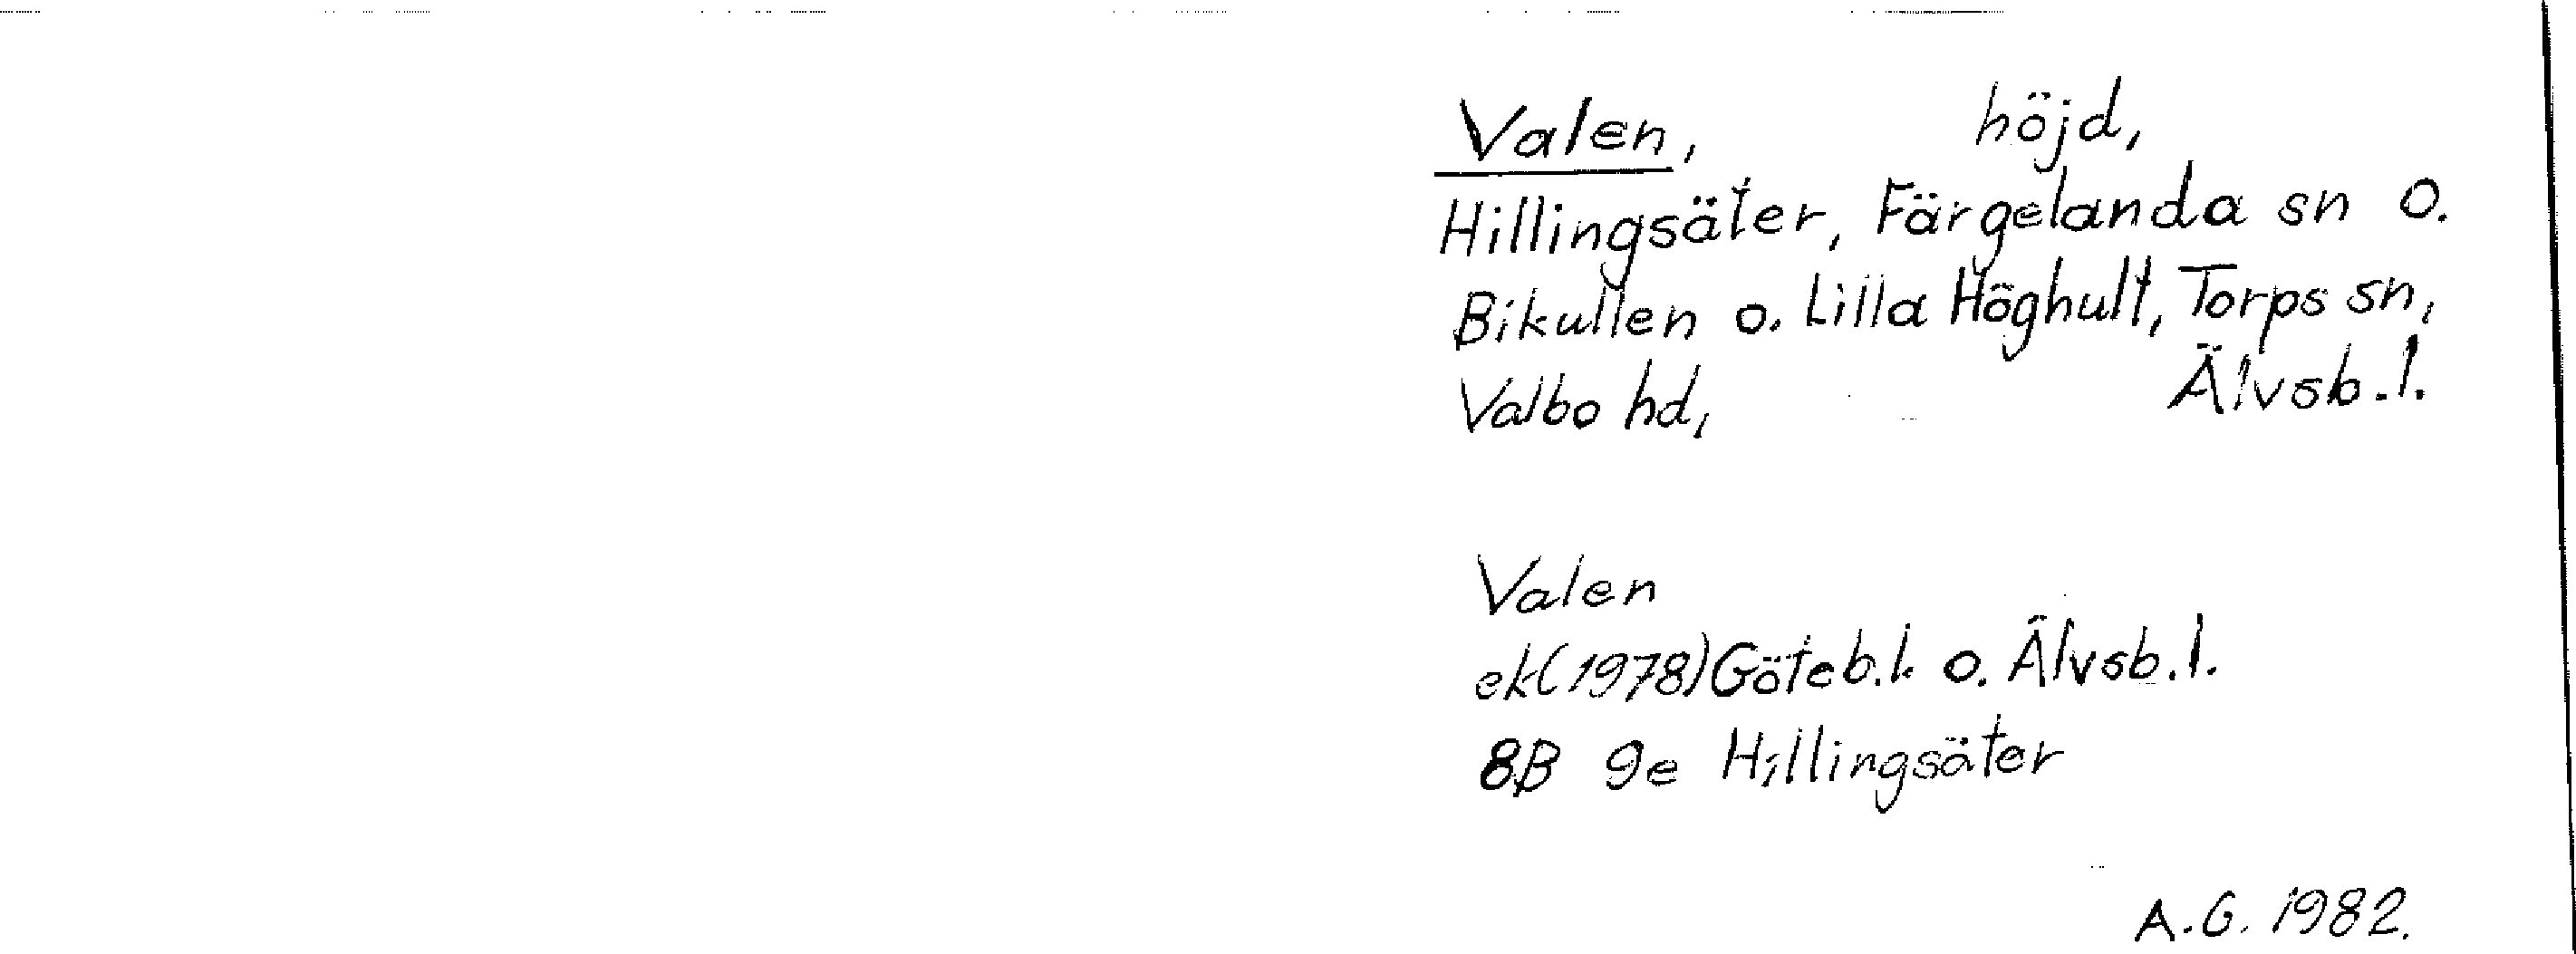 Valen, höjd,
Hillingsäter, Färgelanda sn o.
Bikullen o. Lilla Höghult, Torps sn,
Valbo hd, Älvsb.l.
Valen
ek(1978)Göteb.l. o. Älvsb.l.
8B 9e Hillingsäter
A.G. 1982.